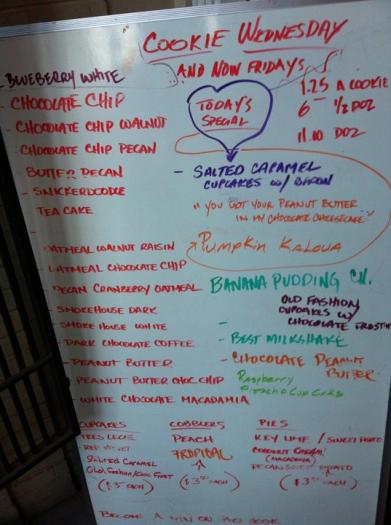 COOKIE WEDNESDAY
AND NOW FRIDAYS
- BLUEBERRY WHITE
- CHOCOLATE CHIP
- CHOCOLATE CHIP WALNUT
CHOCOLATE CHIP PECAN
BUTTER PECAN
- SNICKERDOODLE
TEA CAKE
-
OATMEAL WALNUT RAISIN
- OATMEAL CHOCOLATE CHIP
- PECAN CRANBERRY OATMEAL
- SMOKEHOUSE DARK
- SMOKEHOUSE WHITE
- DARK CHOCOLATE COFFEE
- PEANUT BUTTER
- PEANUT BUTTER CHOC CHIP
- WHITE CHOCOLATE MACADAMIA
1.25 A COOKIE
6 1/2 DOZ
11.00 DOZ
TODAY'S
SPECIAL
- SALTED CARAMEL
CUPCAKES W/ BACON
"YOU GOT YOUR PEANUT BUTTER
IN MY CHOCOLATE CHEESECAKE"
PUMPKIN KALOUA
BANANA PUDDING CH.
OLD FASHION
CUPCAKES W/
CHOCOLATE FROSTING
- BEST MILKSHAKE
- CHOCOLATE PEANUT
BUTTER
Raspberry
Pistachio Cupcakes
CUPCAKES
TRES LECHE
RED VELVET
Salted Caramel
Old Fashion/Choc Frost
($3 EACH)
COBBLERS
PEACH
TROPICAL
($3 EACH)
PIES
KEY LIME / SWEET POTATO
COCONUT CREAM
(MACADAMIA)
PECAN SWEET POTATO
($3 EACH)
BECOME A FAN ON